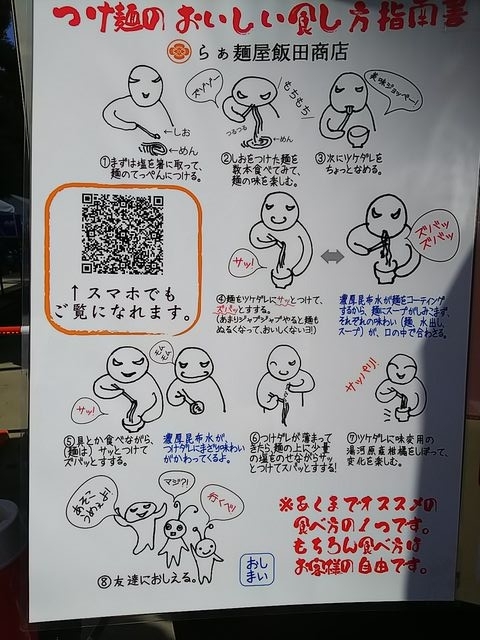 つけ麺のおいしい食し方指南書
らぁ麺屋飯田商店
←しお
←めん
①まずは塩を箸に取って、
麺のてっぺんにつける。
ズゾゾー
もちもち
つるつる
←めん
②しおをつけた麺を
数本食べてみて、
麺の味を楽しむ。
美味ジョッペー!
③次にツケダレを
ちょっとなめる。
↑スマホでも
ご覧になれます。
サッ!
④麺をツケダレにサッとつけて、
ズバッとすする。
(あまりジャブジャブやると麺も
ぬるくなって、おいしくないヨ!)
ズバッ
ズバッ
濃厚昆布水が麺をコーティング
するから、麺にスープがしみこまず、
それぞれの味わい(麺、水出し、
スープ)が、口の中で合わさる。
サッ!
⑤具とか食べながら、
(麺は)サッとつけて
ズバッとすする。
濃厚昆布水が、
つけダレにまざり味わい
がかわってくるよ。
⑥つけダレが薄まって
きたら麺の上に少量
の塩をのせながらサッ
とつけてズバッとすする!
サッパリ!
⑦ツケダレに味変用の
湯河原産柑橘をしぼって、
変化を楽しむ。
あそこ
うめぇよ!
マジ?!
行くべッ
⑧友達におしえる。
おし
まい
※あくまでオススメの
食べ方の1つです。
もちろん食べ方は
お客様の自由です。